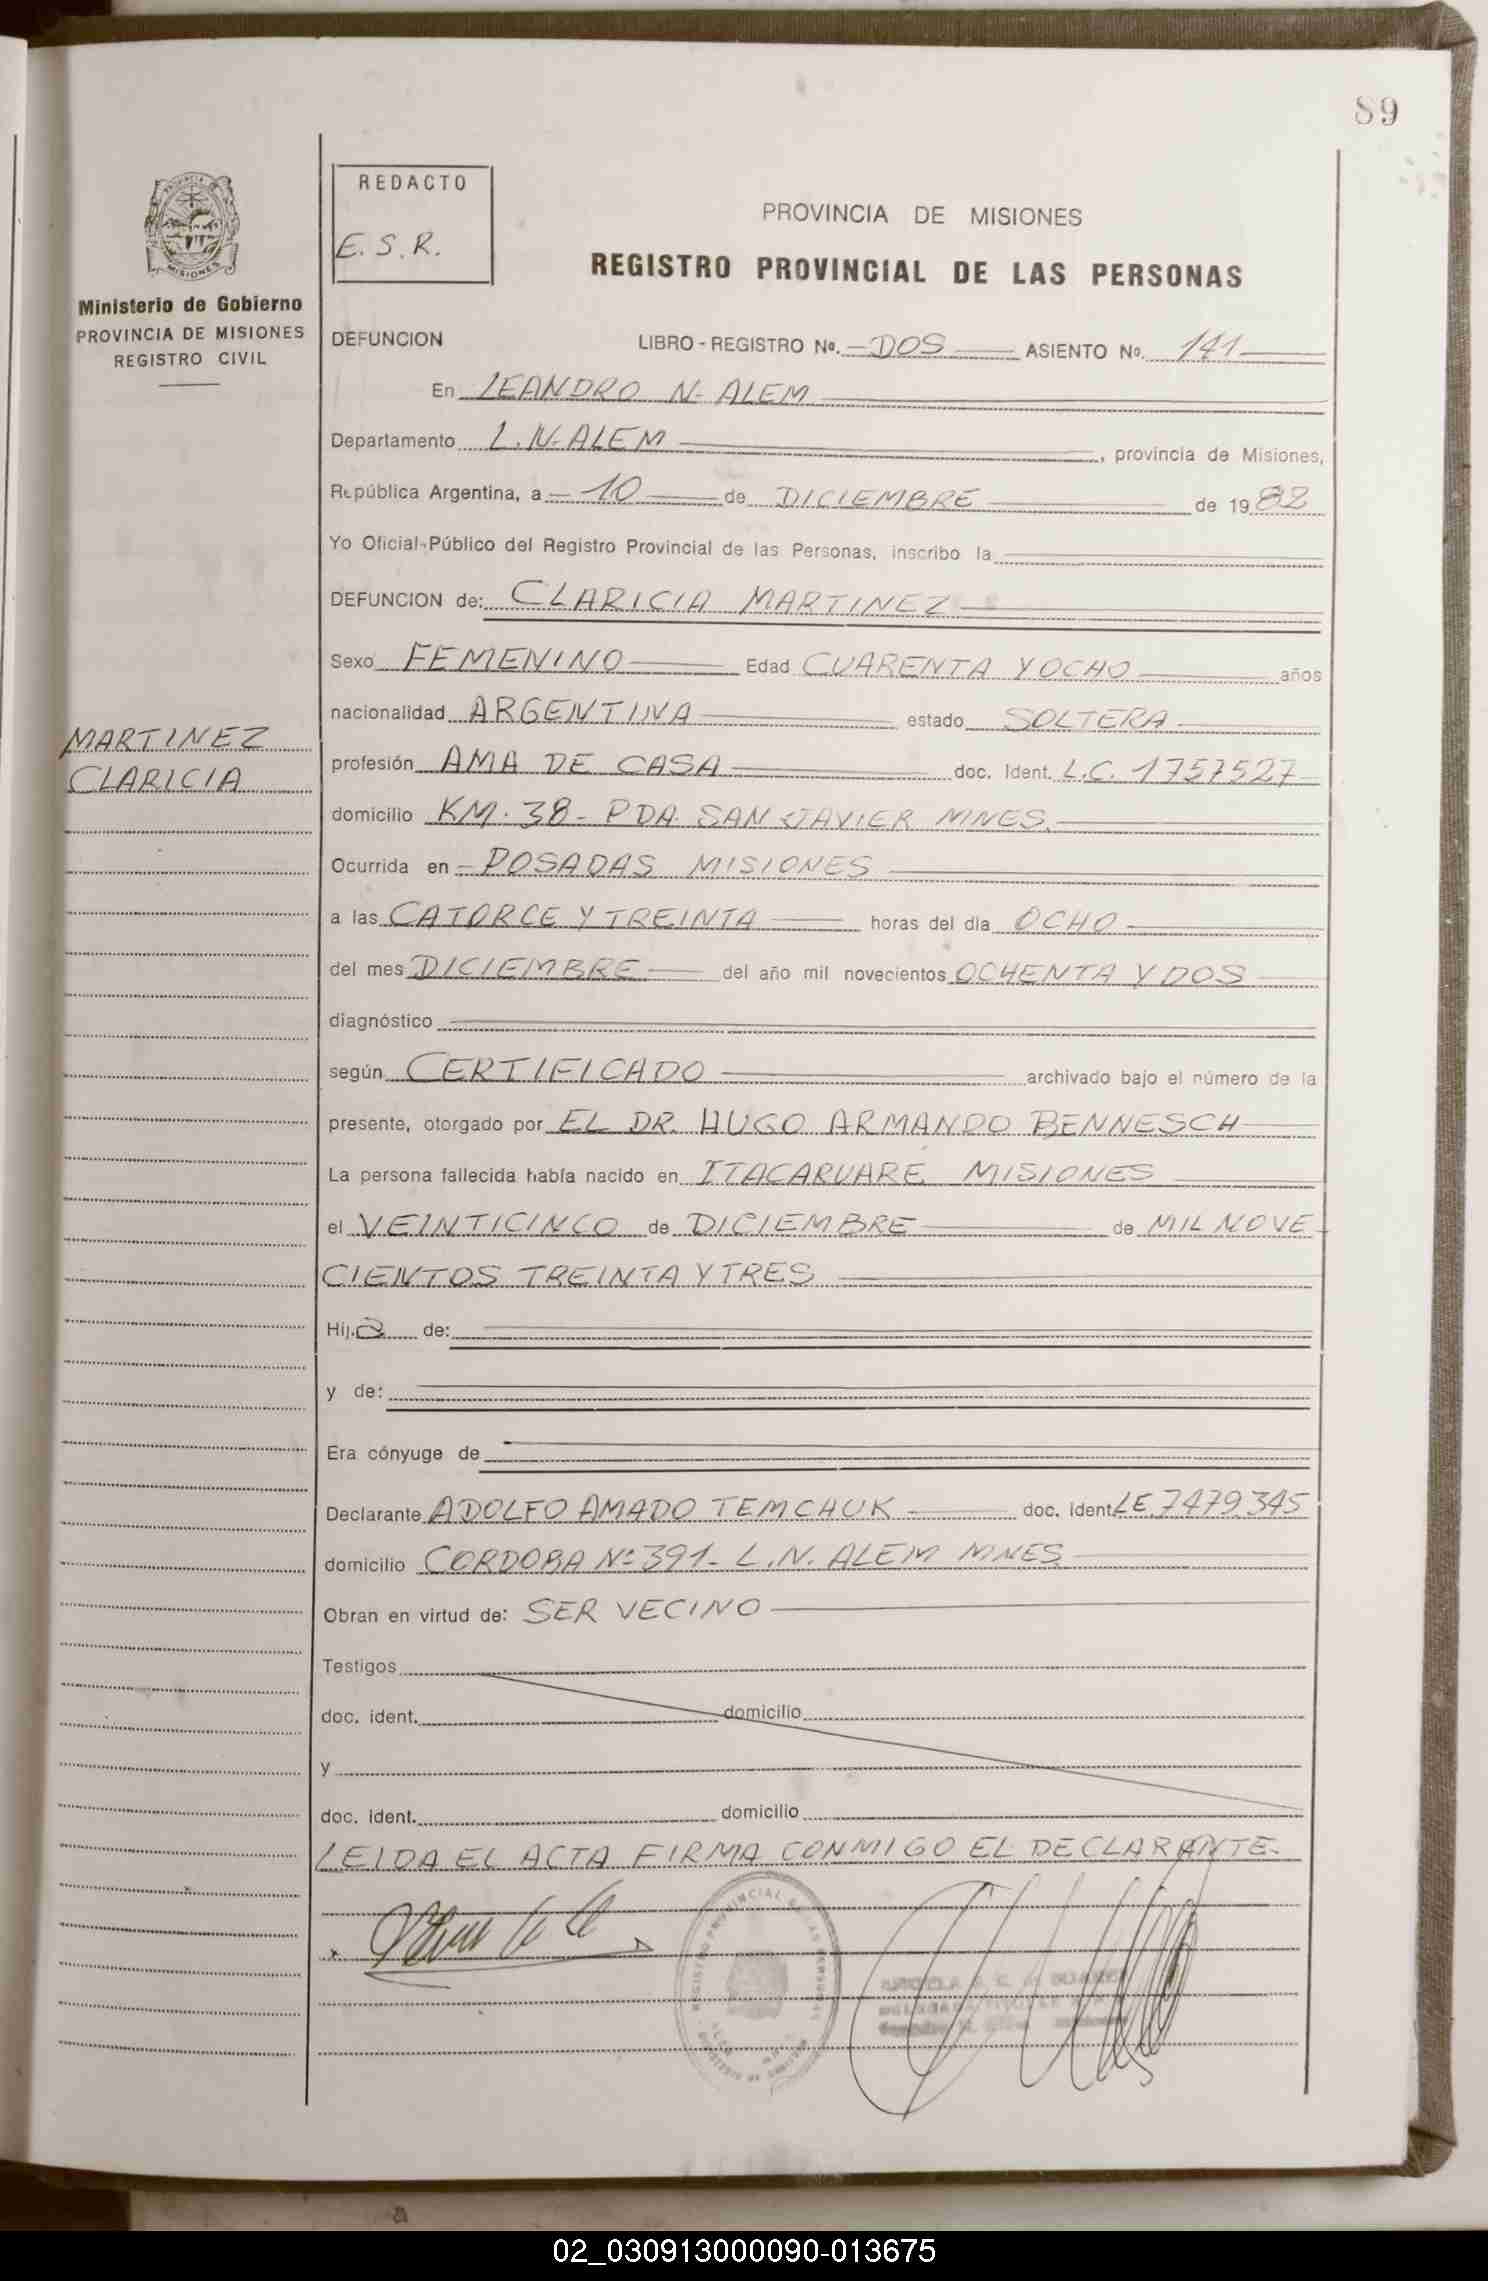 89
PROVINCIA DE MISIONES
Ministerio de Gobierno
PROVINCIA DE MISIONES
REGISTRO CIVIL
MARTINEZ
CLARICIA
REDACTO
E. S. R.
PROVINCIA DE MISIONES
REGISTRO PROVINCIAL DE LAS PERSONAS
DEFUNCION LIBRO - REGISTRO Nº. DOS ASIENTO Nº. 141
En LEANDRO N. ALEM
Departamento L. N. ALEM, provincia de Misiones,
República Argentina, a 10 de DICIEMBRE de 1982
Yo Oficial-Público del Registro Provincial de las Personas, inscribo la
DEFUNCION de: CLARICIA MARTINEZ
Sexo FEMENINO Edad CUARENTA Y OCHO años
nacionalidad ARGENTINA estado SOLTERA
profesión AMA DE CASA doc. Ident. L.C. 1757527
domicilio KM. 38 - PDA. SAN JAVIER MNES.
Ocurrida en POSADAS MISIONES
a las CATORCE Y TREINTA horas del dia OCHO
del mes DICIEMBRE del año mil novecientos OCHENTA Y DOS
diagnóstico
según CERTIFICADO archivado bajo el número de la
presente, otorgado por EL DR. HUGO ARMANDO BENNESCH
La persona fallecida había nacido en ITACARUARE MISIONES
el VEINTICINCO de DICIEMBRE de MIL NOVE
CIENTOS TREINTA Y TRES
Hij.a de:
y de:
Era cónyuge de
Declarante ADOLFO AMADO TEMCHUK doc. Ident LE. 7479.345
domicilio CORDOBA Nº 391 - L. N. ALEM MNES.
Obran en virtud de: SER VECINO
Testigos
doc. ident. domicilio
y
doc. ident. domicilio
LEIDA EL ACTA FIRMA CONMIGO EL DECLARANTE.
REGISTRO PROVINCIAL DE LAS PERSONAS
02_030913000090-013675